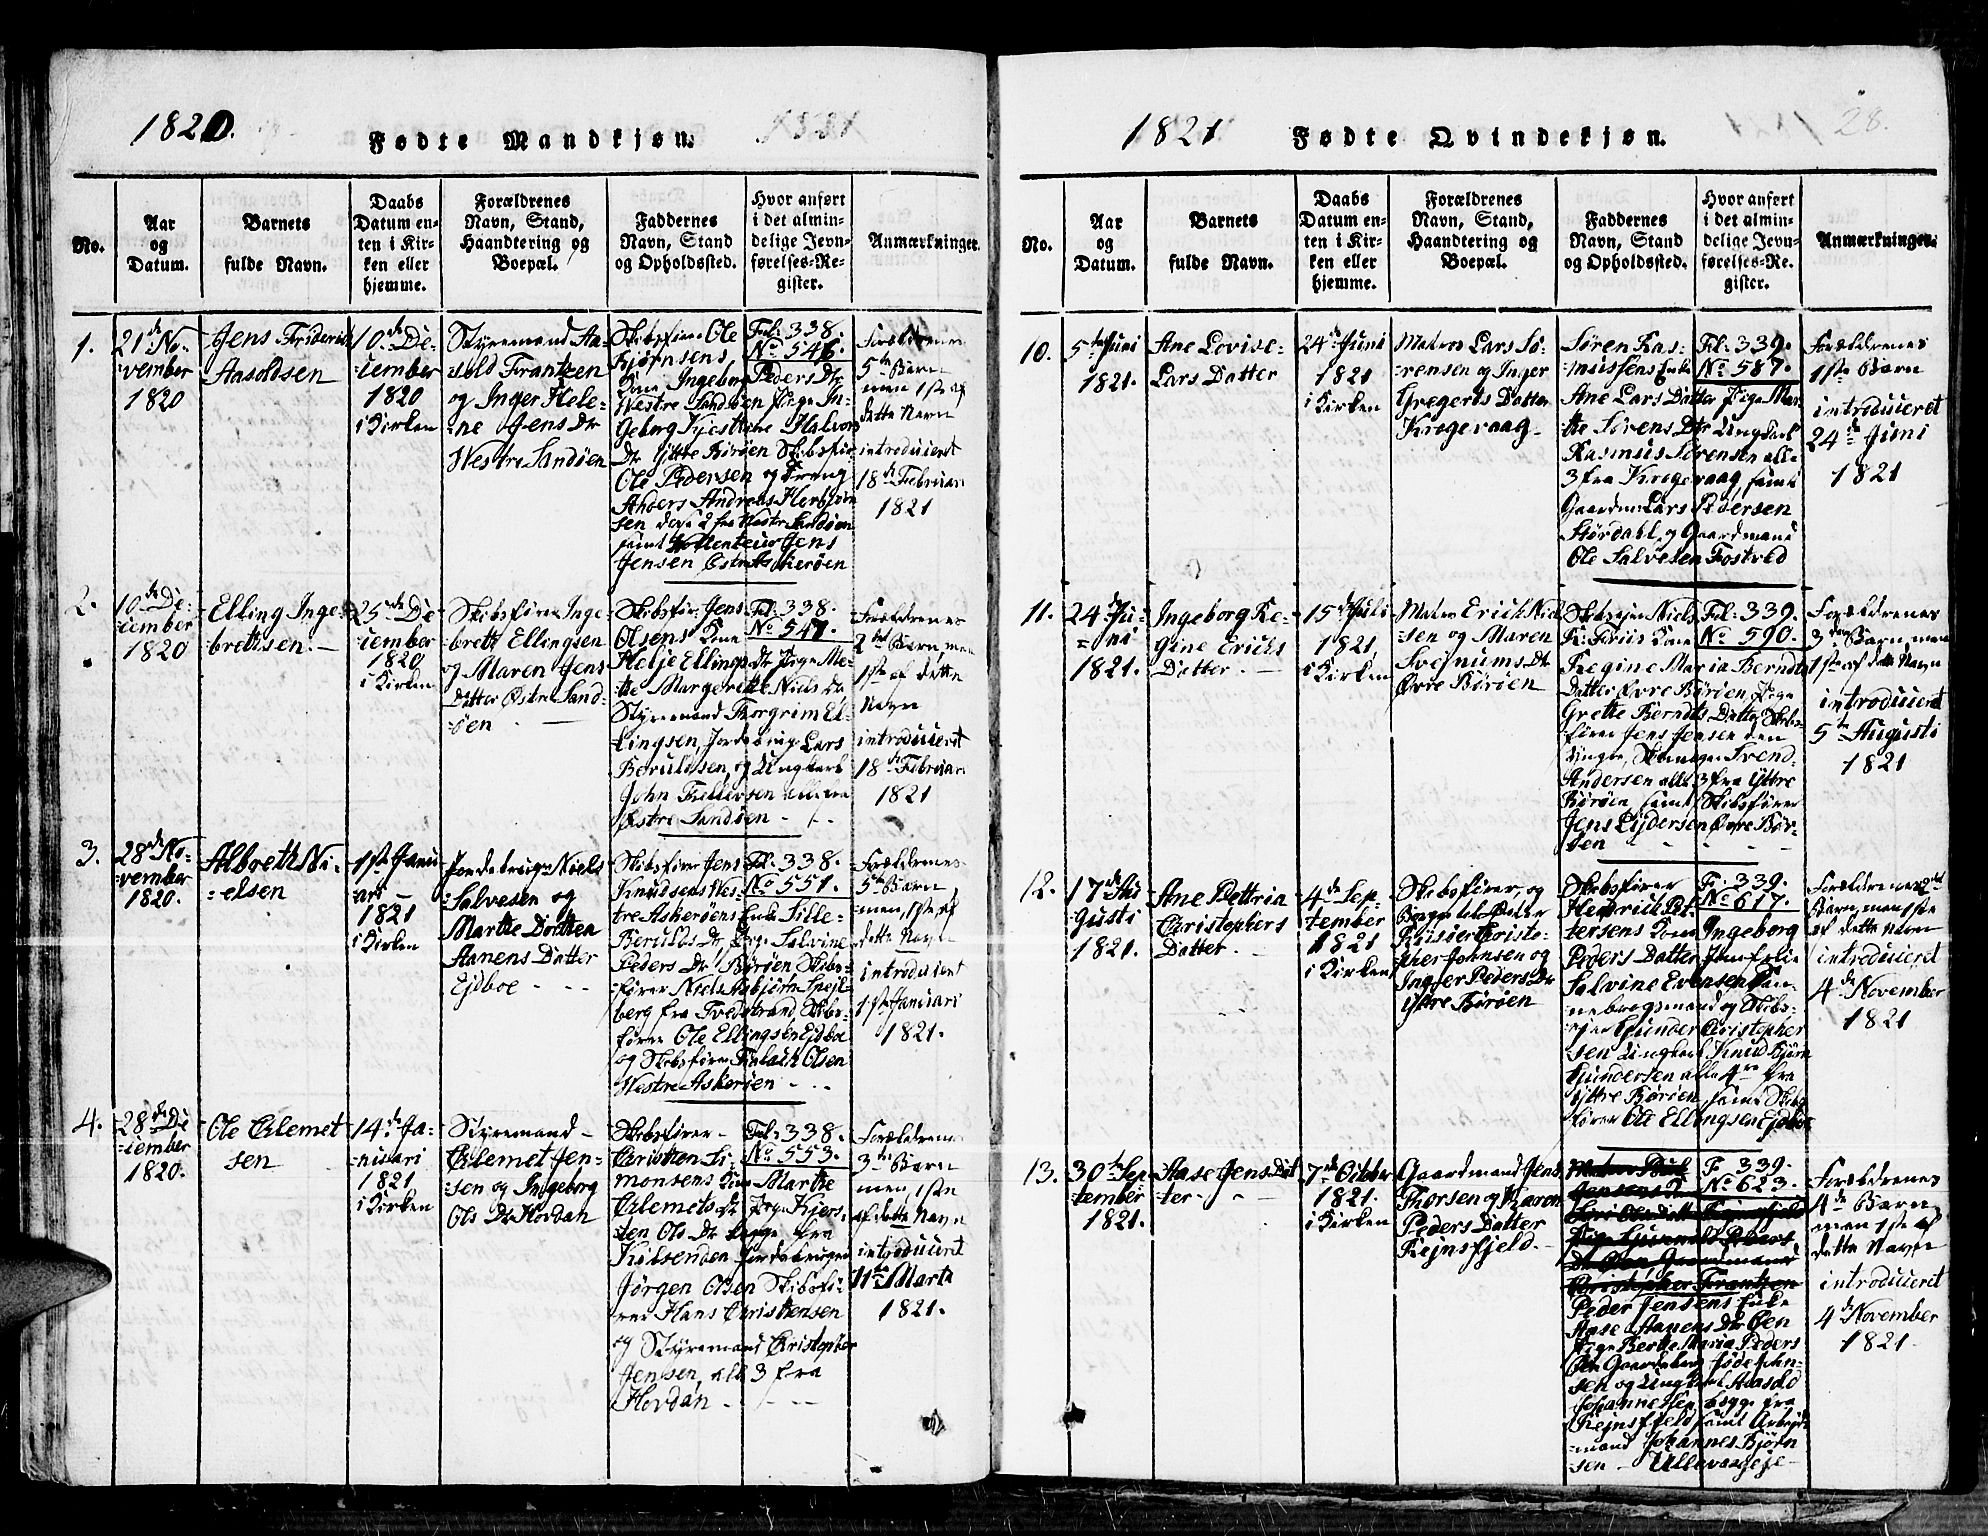 1820.
Fødte Mandkjøn.
1821
No.
Aar
og
Datum.
Barnets
fulde Navn.
Daabs
Datum en-
ten i Kir-
ken eller
hjemme.
Forældrenes
Navn, Stand,
Haandtering og
Boepæl.
Faddernes
Navn, Stand
og Opholdssted.
Hvor anført
i det almin-
delige Jevn-
førelses-Re-
gister.
Anmærkninger.
1.
21de No-
vember
1820
Jens Friderich
Aasoldsen
10de De-
cember
1820
i Kirken
Styremand Aa-
sold Frantzen
og Inger Hele-
ne Jens Dtr
Westre Sandøen
Skibsfører Ole
Bjørnsens
Kone Ingeborg Peders Dtr
Westre Sandøen Pige In-
geborg Halvors
Dtr Yttre Børøen Skibsfø-
Ole Pedersen og Dreng
Anders Andreas Herbjørn
sen begge 2 fra Westre Sandøen
samt Jens
Jensen Østre Askerøen
Fol: 338.
No 546.
Forældrenes
5te Barn
men 1ste af
dette Navn
introduceret
18de Februari
1821
2.
10de De-
cember
1820
Elling Inge-
brettsen.
25de De-
cember
1820
i Kirken
Skibsfører Inge-
brett Ellingsen
og Maren Jens
Datter Østre Sand-
øen
Skibsfør: Jens
Olsens Kone
Helje Ellings Dtr Pige Me-
tte Margrette Niels Da
Styremand Torgrim El-
lingsen, Jordebrug Lars
Beruldsen, og Ungkarl
John Tellevsen alle fra
Østre Sandøen
Fol: 338.
No 547.
Forældrenes
2det Barn, men
1ste af dette
Navn
introduceret
18de Februari
1821
3.
28de No-
vember
1820.
Alboeth Ni-
elsen
1ste Janu
ari
1821
i Kirken
Jordebruger Niels
Salvesen og
Marthe Dorthea
Aanens Datter
Ejdboe
Skibsfører Jens
Knudsens Wes-
tre Askerøens Enke Sille
Berulds Dtr Pige Salvine
Peders Dtr Børøen Skibs-
fører Niels Asbjørn Spejl-
berg fra Tvedstrand, Skibs-
fører Ole Ellingsen Ejdboe
og Skibsfører Olsen
Westre Askerøen
Fol: 338.
No 551.
Forældrenes
5te Barn
men, 1ste af
dette Navn
introduceret
1ste Januari
1821.
4.
28de De-
cember
1820.
Ole Clemet
sen
14de Ja-
nuari
1821
i Kirken
Styremand
Clemet Jen-
sen og Ingeborg
Ols Dtr Hovdan
Skibsfører
Christen Si-
monsens Kone Marthe
Clemets Dtr Pige Kjers-
ten Ols Dtr begge fra
Jordebruger
Jørgen Olsen Skibsfø-
rer Hans Christensen
og Styremand Christopher
Jensen, alle 3 fra
Hovdan
Fol: 338.
No 553.
Forældrenes
3die Barn
men, 1ste
af dette Navn
introduceret
11te Marti
1821.
1821
Fødte Qvindekjøn.
28.
No.
Aar
og
Datum.
Barnets
fulde Navn.
Daabs
Datum en-
ten i Kir-
ken eller
hjemme.
Forældrenes
Navn, Stand,
Haandtering og
Boepæl.
Faddernes
Navn, Stand
og Opholdssted.
Hvor anført
i det almin-
delige Jevn-
førelses-Re-
gister.
Anmærkninger.
10.
5te Juni
1821.
Ane Lovise
Lars Datter
24de Juni
1821
i Kirken
Matros Lars Sø-
rensen og Inger
Gregerts Datter
Krogevaag
Søren Ras-
mussens Enke
Ane Lars Datter Pige Mar-
the Sørens Dtr Ungkarl
Rasmus Sørensen alle
3 fra Krogevaag, samt
Gaardm: Lars Pedersen
Størdahl, og Gaardmand
Ole Salvesen Fostved
Fol: 339.
No 587.
Forældrenes
1ste Barn
introduceret
24de Juni
1821
11.
24de Ju-
ni
1821.
Ingeborg Re-
gine Erichs
Datter
15de Juli
1821
i Kirken
Matros Erich Niel-
sen og Maren
Svejnums Dtr
Øvre Børøen
Skibsejer Niels
Friis Kone
Fregine Maria Berndts
Datter Øvre Børøen, Pige
Grette Berndts Datter, Skibs-
fører Jens Jensen den
yngre, Svend
Andersen alle 3 fra Yttre
Børøen samt Skibsfører
Jens Eydersen Øvre Bør-
øen
Fol: 339.
No 590.
Forældrenes
3die Barn, men
1ste af dette Navn
introduceret
5te Augusti
1821
12.
17de Au
gusti
1821.
Ane Dettria
Christophers
Datter
4de Sep-
tember
1821
i Kirken
Skibsfører, og
Borger til Øster
Riisøer Christo-
pher Jonsen og
Inger Peders Dtr
Yttre Børøen
Skibsfører
Hendrich Pet-
tersens Kone Ingeborg
Peders Datter Jomfrue
Salvine Evensen Dan-
nebrogsmand og Skibs-
ejer Gunder Christopher
sen Ungkarl Knud Bjørn
Gundersen alle 4re fra
Yttre Børøen, samt Skibs
fører Ole Ellingsen Ejdboe
Fo: 339.
No 617.
Forældrenes 2det
Barn, men 1ste
af dette Navn
introduceret
4de November
1821
13.
30te Sep
tember
1821.
Aase Jens Dat
ter
7de Octbr
1821.
i Kirken
Gaardmand Jens
Thorsen og Karen
Peders Datter
Rejnsfjeld
Peder Jensens Enke
Aase Aanens Dtr Øen
Pige Berthe Maria Peders
Dtr Gaardbrug: Jøde John-
sen og Ungkarl Aasold
Johannesen begge fra
Rejnsfjeld samt Arbejds
mand Johannes Bjørn
sen Ullevaageje
F: 339.
No 623.
Forældrenes
4de Barn
men 1ste af
dette Navn
introduceret
4de November
1821.